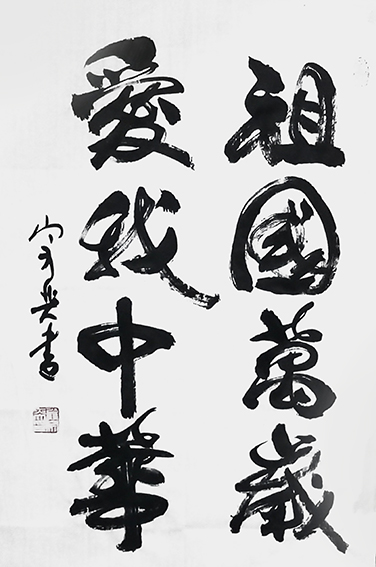 祖國萬歲
愛我中華